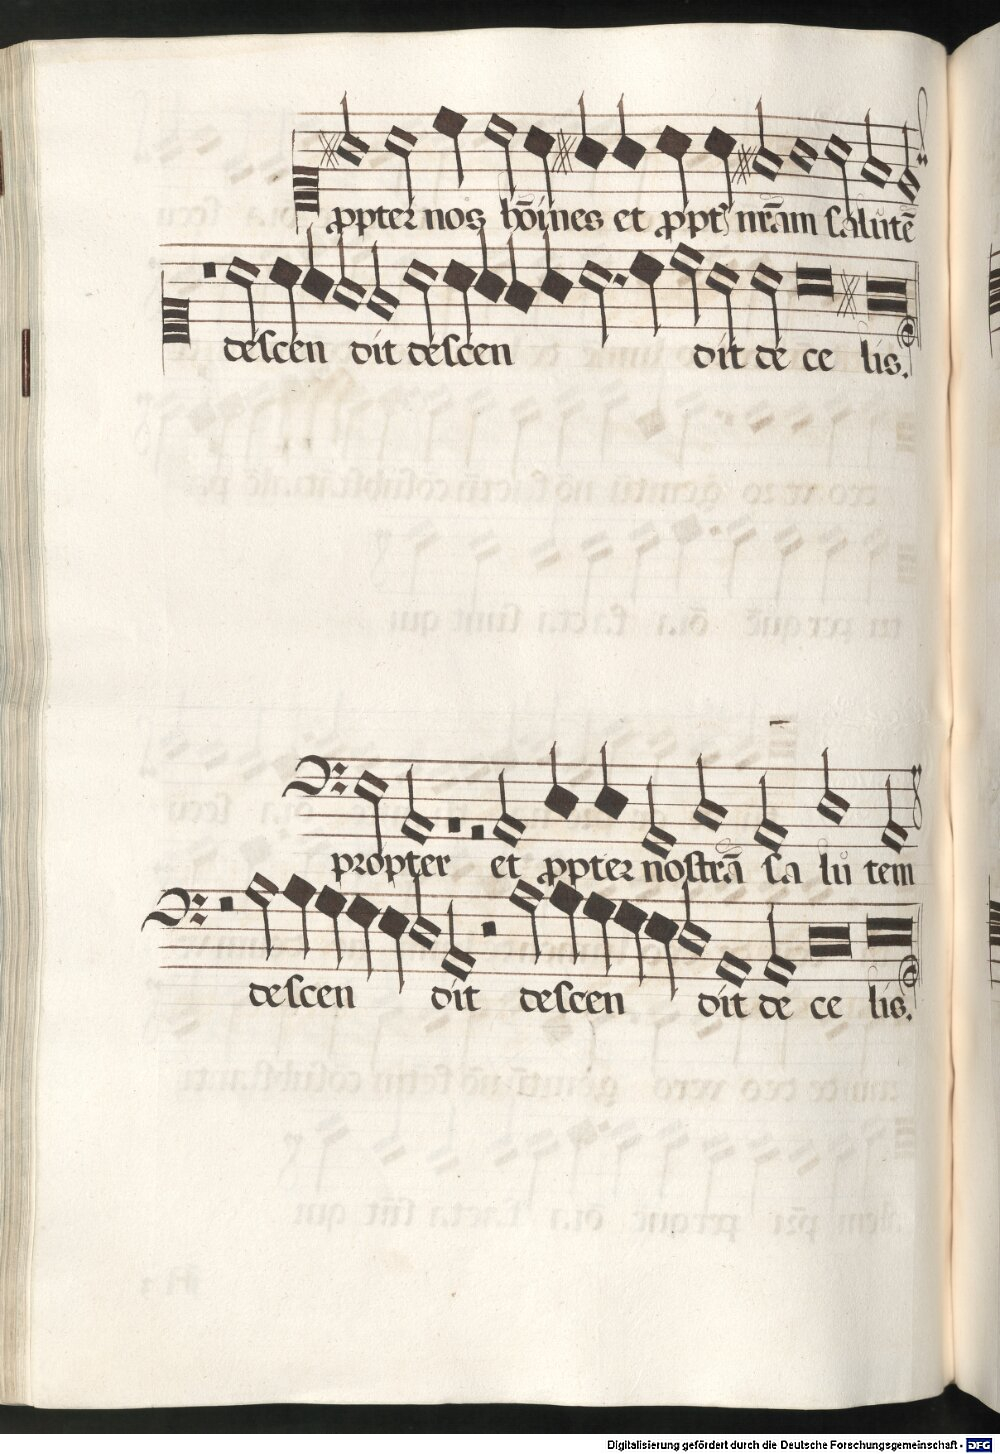 ꝓpter nos hōines et ꝓpt᷑ nr̄am salutē
descen dit descen dit de ce lis.
propter et ꝓpter nostrā sa lu tem
descen dit descen dit de ce lis.
Digitalisierung gefördert durch die Deutsche Forschungsgemeinschaft - DFG